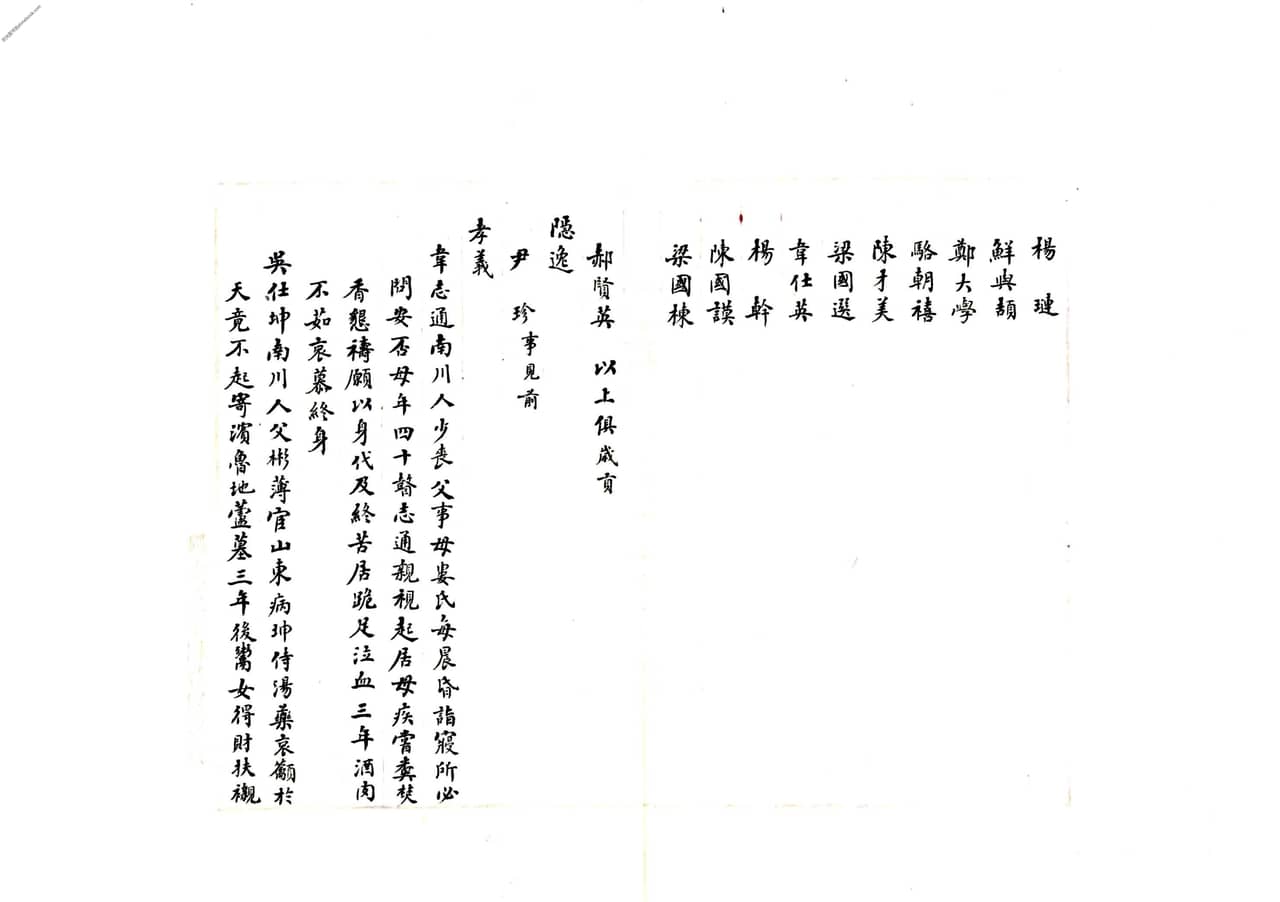 楊 璉
鮮與頡
鄭大學
駱朝禧
陳才美
梁國選
韋仕英
楊 幹
陳國謨
梁國棟
郝賢英 以上俱歲貢
隱逸
尹 珍 事見前
孝義
韋志通南川人少喪父事母婁氏每晨昏詣寢所必
問安否母年四十瞽志通親視起居母疾嘗糞焚
香懇禱願以身代及終苦居跪足泣血三年酒肉
不茹哀慕終身
吳仕坤南川人父彬薄宦山東病坤侍湯藥哀籲於
天竟不起寄濱魯地蘆墓三年後鬻女得財扶襯